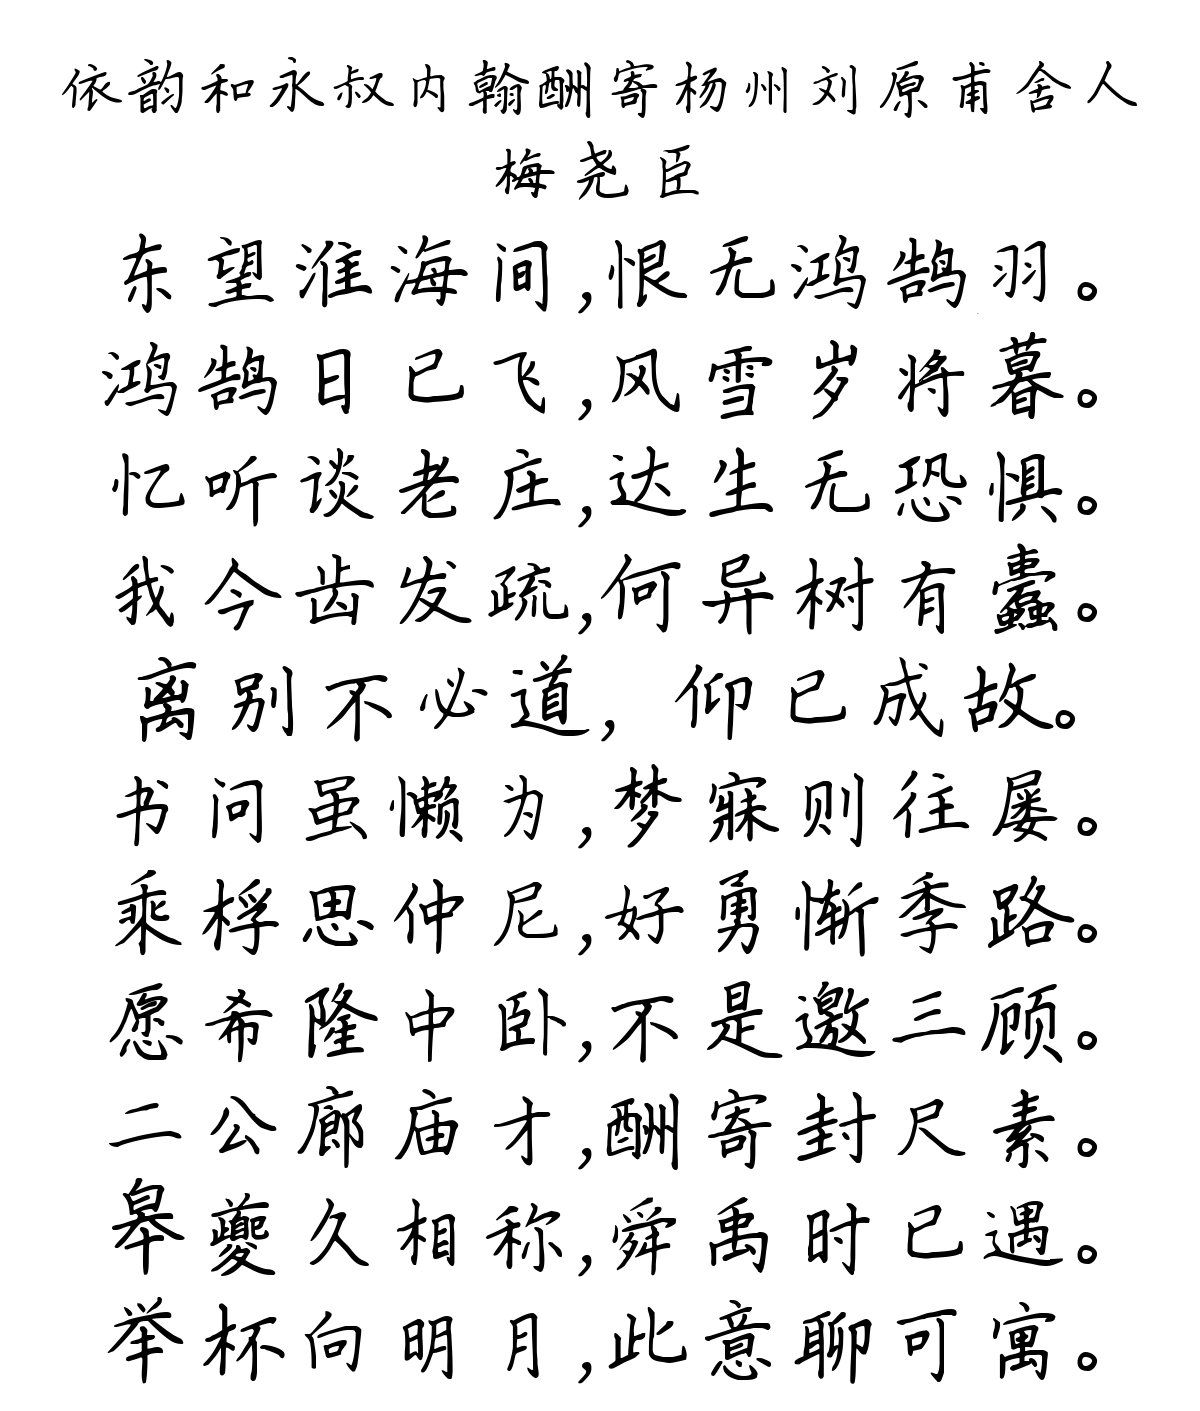 依韵和永叔内翰酬寄杨州刘原甫舍人
梅尧臣
东望淮海间,恨无鸿鹄羽。
鸿鹄日已飞,风雪岁将暮。
忆听谈老庄,达生无恐惧。
我今齿发疏,何异树有蠹。
离别不必道,仰已成故。
书问虽懒为,梦寐则往屡。
乘桴思仲尼,好勇惭季路。
愿希隆中卧,不是邀三顾。
二公廊庙才,酬寄封尺素。
皋夔久相称,舜禹时已遇。
举杯向明月,此意聊可寓。